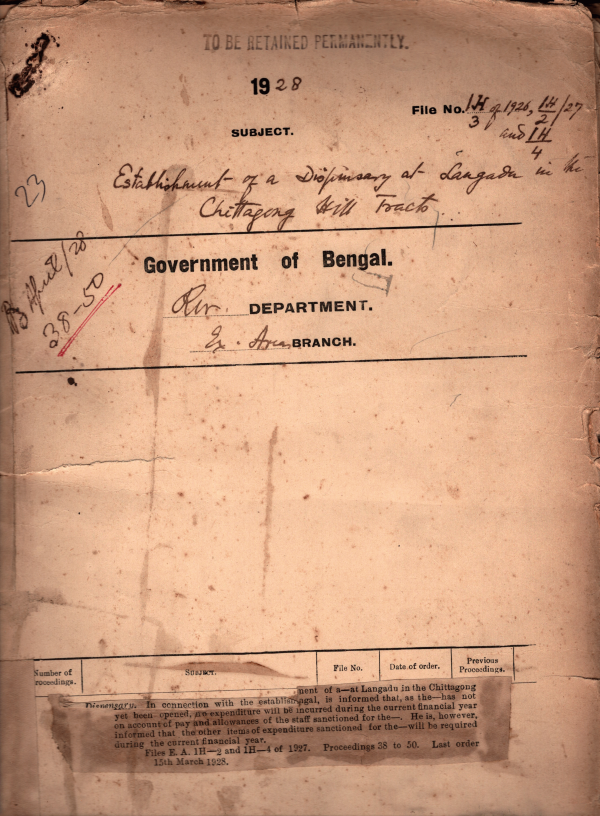 TO BE RETAINED PERMANENTLY.
1928
File No. 1H/3 of 1926, 1H/2/27
and 1H/4
SUBJECT.
23
Establishment of a Dispensary at Langadu in the
Chittagong Hill Tracts
B April/28
38-50
Government of Bengal.
Rev. DEPARTMENT.
Ex. Area BRANCH.
Number of Proceedings.
SUBJECT.
File No.
Date of order.
Previous Proceedings.
ment of a—at Langadu in the Chittagong
Dispensary. In connection with the establish gal, is informed that, as the—has not
yet been opened, no expenditure will be incurred during the current financial year
on account of pay and allowances of the staff sanctioned for the—. He is, however,
informed that the other items of expenditure sanctioned for the—will be required
during the current financial year.
Files E. A. 1H—2 and 1H—4 of 1927. Proceedings 38 to 50. Last order
15th March 1928.